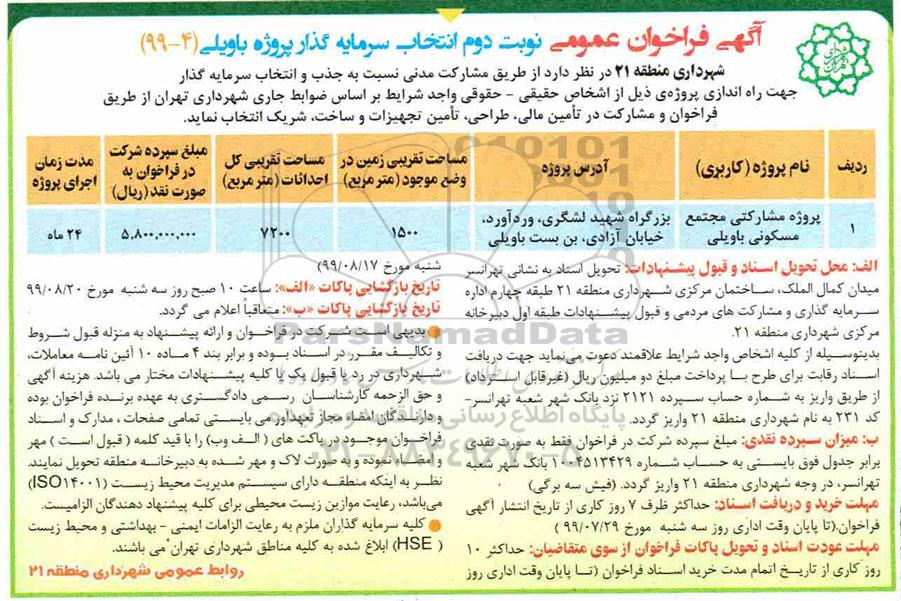 آگهی فراخوان عمومی نوبت دوم انتخاب سرمایه گذار پروژه باویلی (۴-۹۹)
شهرداری منطقه ۲۱ در نظر دارد از طریق مشارکت مدنی نسبت به جذب و انتخاب سرمایه گذار
جهت راه اندازی پروژه‌ی ذیل از اشخاص حقیقی - حقوقی واجد شرایط بر اساس ضوابط جاری شهرداری تهران از طریق
فراخوان و مشارکت در تأمین مالی، طراحی، تأمین تجهیزات و ساخت، شریک انتخاب نماید.
ردیف
نام پروژه (کاربری)
آدرس پروژه
مساحت تقریبی زمین در
وضع موجود (متر مربع)
مساحت تقریبی کل
احداثات (متر مربع)
مبلغ سپرده شرکت
در فراخوان به
صورت نقد (ریال)
مدت زمان
اجرای پروژه
۱
پروژه مشارکتی مجتمع
مسکونی باویلی
بزرگراه شهید لشگری، وردآورد،
خیابان آزادی، بن بست باویلی
۱۵۰۰
۷۲۰۰
۵,۸۰۰,۰۰۰,۰۰۰
۲۴ ماه
الف: محل تحویل اسناد و قبول پیشنهادات: تحویل اسناد به نشانی تهرانسر
میدان کمال الملک، ساختمان مرکزی شهرداری منطقه ۲۱ طبقه چهارم اداره
سرمایه گذاری و مشارکت های مردمی و قبول پیشنهادات طبقه اول دبیرخانه
مرکزی شهرداری منطقه ۲۱.
بدینوسیله از کلیه اشخاص واجد شرایط علاقمند دعوت می‌نماید جهت دریافت
اسناد رقابت برای طرح با پرداخت مبلغ دو میلیون ریال (غیرقابل استرداد)
از طریق واریز به شماره حساب سپرده ۲۱۲۱ نزد بانک شهر شعبه تهرانسر-
کد ۲۳۱ به نام شهرداری منطقه ۲۱ واریز گردد.
ب: میزان سپرده نقدی: مبلغ سپرده شرکت در فراخوان فقط به صورت نقدی
برابر جدول فوق بایستی به حساب شماره ۱۰۰۴۵۱۳۴۲۹ بانک شهر شعبه
تهرانسر، در وجه شهرداری منطقه ۲۱ واریز گردد. (فیش سه برگی)
مهلت خرید و دریافت اسناد: حداکثر ظرف ۷ روز کاری از تاریخ انتشار آگهی
فراخوان.(تا پایان وقت اداری روز سه شنبه مورخ ۹۹/۰۷/۲۹)
مهلت عودت اسناد و تحویل پاکات فراخوان از سوی متقاضیان: حداکثر ۱۰
روز کاری از تاریخ اتمام مدت خرید اسناد فراخوان (تا پایان وقت اداری روز
شنبه مورخ ۹۹/۰۸/۱۷)
تاریخ بازگشایی پاکات «الف»: ساعت ۱۰ صبح روز سه شنبه مورخ ۹۹/۰۸/۲۰
تاریخ بازگشایی پاکات «ب»: متعاقباً اعلام می گردد.
بدیهی است شرکت در فراخوان و ارائه پیشنهاد به منزله قبول شروط
و تکالیف مقرر در اسناد بوده و برابر بند ۴ ماده ۱۰ آئین نامه معاملات،
شهرداری در رد یا قبول یک یا کلیه پیشنهادات مختار می باشد. هزینه آگهی
و حق الزحمه کارشناسان رسمی دادگستری به عهده برنده فراخوان بوده
و دارندگان امضاء مجاز تعهدآور می بایستی تمامی صفحات، مدارک و اسناد
فراخوان موجود در پاکت های (الف وب) را با قید کلمه (قبول است) مهر
و امضاء نموده و به صورت لاک و مهر شده به دبیرخانه منطقه تحویل نمایند.
نظر به اینکه منطقه دارای سیستم مدیریت محیط زیست (ISO۱۴۰۰۱)
می‌باشد، رعایت موازین زیست محیطی برای کلیه پیشنهاد دهندگان الزامیست.
کلیه سرمایه گذاران ملزم به رعایت الزامات ایمنی - بهداشتی و محیط زیست
(HSE) ابلاغ شده به کلیه مناطق شهرداری تهران می باشند.
روابط عمومی شهرداری منطقه ۲۱
ParsNamadData
پایگاه اطلاع رسانی مناقصه و مزایده
۰۲۱-۸۸۳۴۹۶۷۰-۵